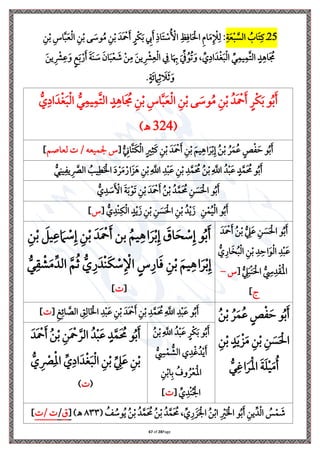 25. كِتَابُ السَّبْعَةِ: لِلْإِمَامِ الْحَافِظِ الْأُسْتَاذِ أَبِي بَكْرٍ أَحْمَدَ بْنِ مُوسَى بْنِ الْعَبَّاسِ بْنِ
مُجَاهِدٍ التَّمِيمِيِّ الْبَغْدَادِيِّ، وَتُوُفِّيَ بِهَا فِي الْعِشْرِينَ مِنْ شَعْبَانَ سَنَةَ أَرْبَعٍ وَعِشْرِينَ
وَثَلَاثِمِائَةٍ.
أَبُو بَكْرٍ أَحْمَدُ بْنُ مُوسَى بْنِ الْعَبَّاسِ بْنِ مُجَاهِدٍ التَّمِيمِيُّ الْبَغْدَادِيُّ
(324 هـ)
أَبُو حَفْصٍ عُمَرُ بْنُ إِبْرَاهِيمَ بْنِ أَحْمَدَ بْنِ كَثِيرٍ الْكَتَّانِيُّ [س لجميعه / ت لعاصم]
أَبُو مُحَمَّدٍ عَبْدُ اللَّهِ بْنُ مُحَمَّدِ بْنِ عَبْدِ اللَّهِ بْنِ هَزَارْمَرْدَ الْخَطِيبُ الصَّرِيفِينِيُّ
أَبُو الْحَسَنِ مُحَمَّدُ بْنُ أَحْمَدَ بْنِ تَوْبَةَ الْأَسَدِيُّ
أَبُو الْيُمْنِ زَيْدُ بْنُ الْحَسَنِ بْنِ زَيْدٍ الْكِنْدِيُّ [س]
أَبُو الْحَسَنِ عَلِيُّ بْنُ أَحْمَدَ
بْنِ عَبْدِ الْوَاحِدِ الْبُخَارِيُّ
الْمَقْدِسِيُّ الْحَنْبَلِيُّ [س –
ج]
أَبُو إِسْحَاقَ إِبْرَاهِيمُ بن أَحْمَدَ بْنِ إِسْمَاعِيلَ بْنِ
إِبْرَاهِيمَ بْنِ فَارِسٍ الْإِسْكَنْدَرِيُّ ثُمَّ الدِّمَشْقِيُّ
[ت]
أَبُو حَفْصٍ عُمَرُ بْنُ
الْحَسَنِ بْنِ مَزْيَدٍ بْنِ
أُمَيْلَةَ الْمَرَاغِيُّ
أَبُو عَبْدِ اللَّهِ مُحَمَّدُ بْنُ أَحْمَدَ بْنِ عَبْدِ الْخَالِقِ الصَّائِغُ [ت]
أَبُو بَكْرٍ عَبْدُ اللَّهِ بْنُ
أَيْدُغْدِي الشَّمْسِيُّ
الْمَعْرُوفُ بِابْنِ
الْجُنْدِيِّ [ت]
أَبُو مُحَمَّدٍ عَبْدُ الرَّحْمَنِ بْنُ أَحْمَدَ
بْنِ عَلِيِّ بْنِ الْبَغْدَادِيِّ الْمِصْرِيُّ
(ت)
شَمْسُ الدِّينِ أَبُو الْخَيْرِ ابْنُ الْجَزَرِيِّ، مُحَمَّدُ بْنُ مُحَمَّدُ بْنُ يُوسُفُ (٨٣٣ هـ) [ق/ت /ت]
67 of 28Page